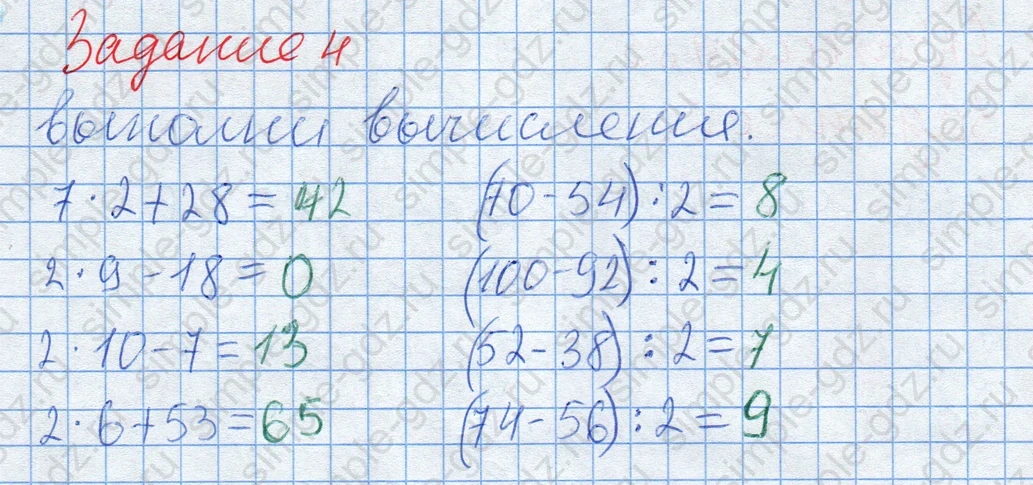 Задание 4
выполни вычисления.
7·2+28=42 (70-54):2=8
2·9-18=0 (100-92):2=4
2·10-7=13 (52-38):2=7
2·6+53=65 (74-56):2=9
simple-gdz.ru